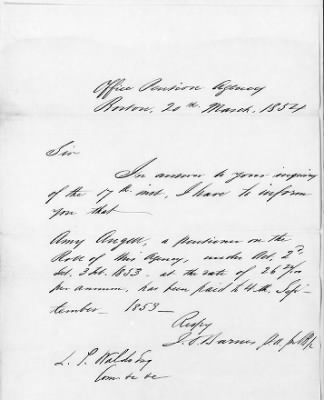 Office Pension Agency
Boston, 20th March, 1854
Sir
In answer to your inquiry
of the 17th inst, I have to inform
you that
Amy Angell, a pensioner on the
Roll of this Agency, under Act, 2nd
Sec. 3 Feb. 1853 - at the rate of 26
per annum, has been paid to 4th. Sep-
tember - 1853 -
Respy
I. O. Barnes
L. P. Waldo Esq
Com &c &c